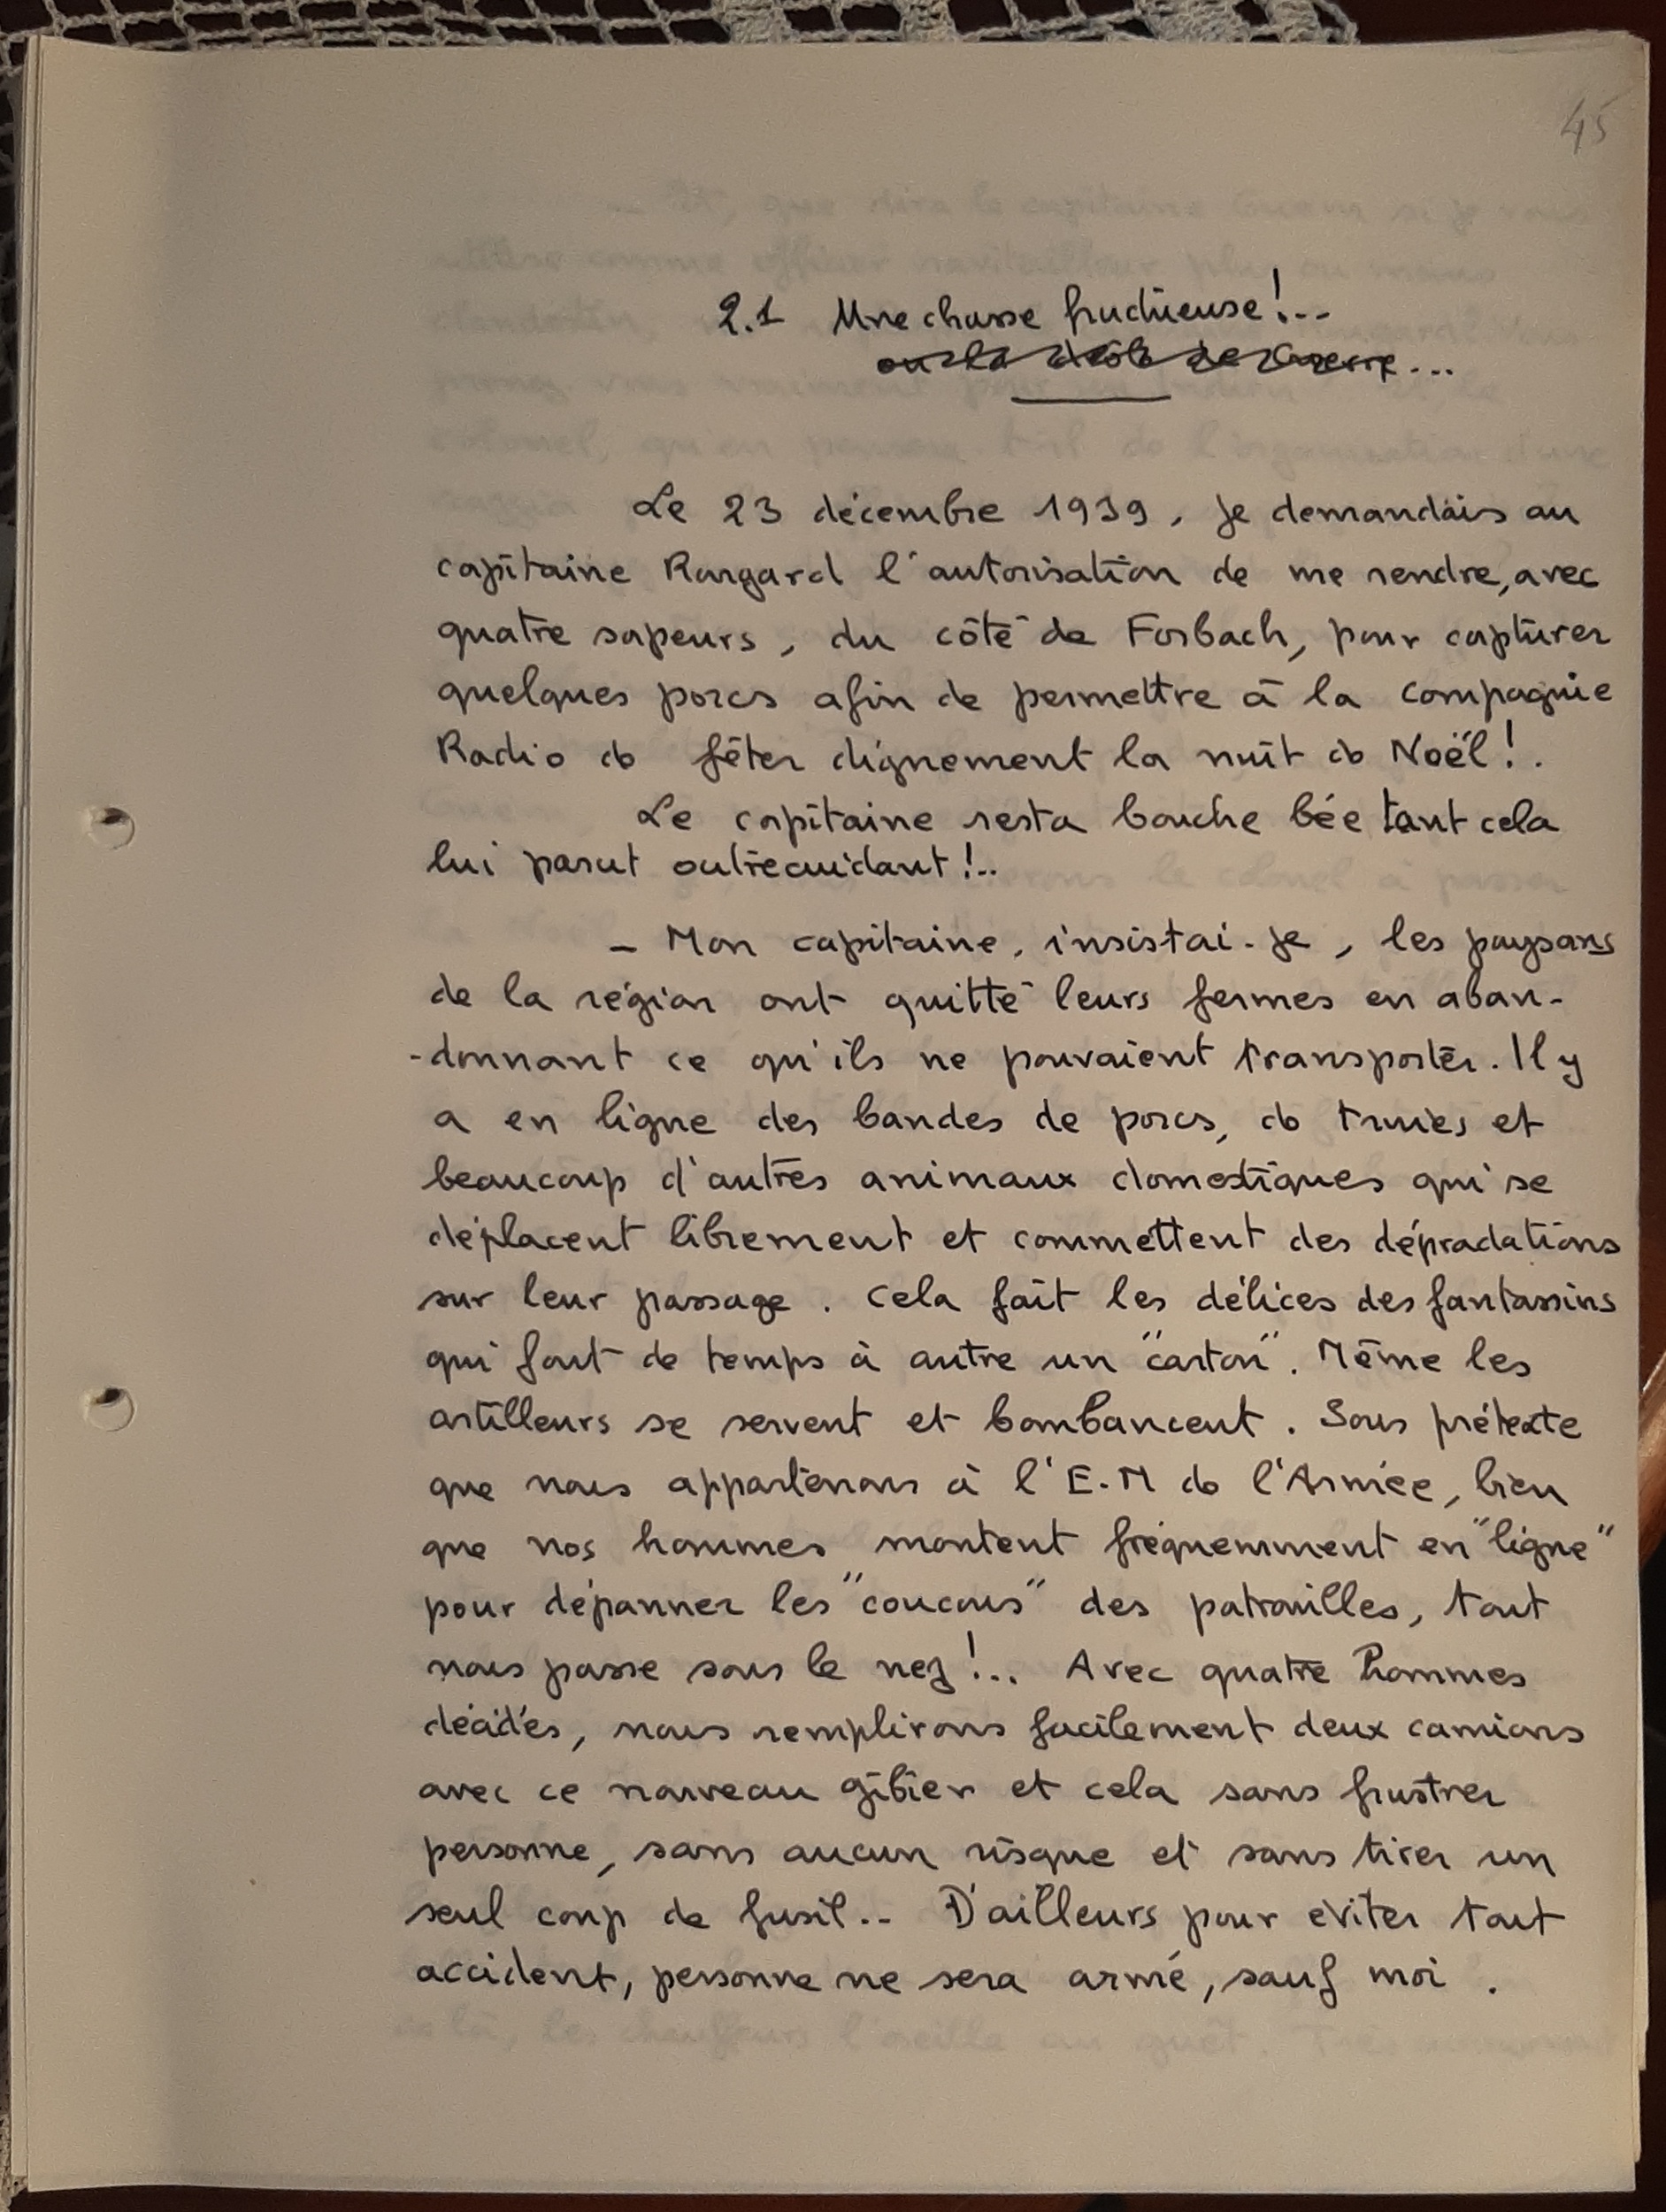 45
2.1 Une chasse fructueuse!..
ou la drôle de Guerre...
Le 23 décembre 1939, je demandais au
capitaine Rangard l'autorisation de me rendre, avec
quatre sapeurs, du côté de Forbach, pour capturer
quelques porcs afin de permettre à la Compagnie
Radio de fêter dignement la nuit de Noël!.
Le capitaine resta bouche bée tant cela
lui parut outrecuidant!..
- Mon capitaine, insistai-je, les paysans
de la région ont quitté leurs fermes en aban-
-donnant ce qu'ils ne pouvaient transporter. Il y
a en ligne des bandes de porcs, de truies et
beaucoup d'autres animaux domestiques qui se
déplacent librement et commettent des dépradations
sur leur passage. Cela fait les délices des fantassins
qui font de temps à autre un "carton". Même les
artilleurs se servent et bombancent. Sous prétexte
que nous appartenons à l'E.M de l'Armée, bien
que nos hommes montent fréquemment en "ligne"
pour dépanner les "coucous" des patrouilles, tout
nous passe sous le nez!... Avec quatre hommes
décidés, nous remplirons facilement deux camions
avec ce nouveau gibier et cela sans frustrer
personne, sans aucun risque et sans tirer un
seul coup de fusil.. D'ailleurs pour éviter tout
accident, personne ne sera armé, sauf moi.